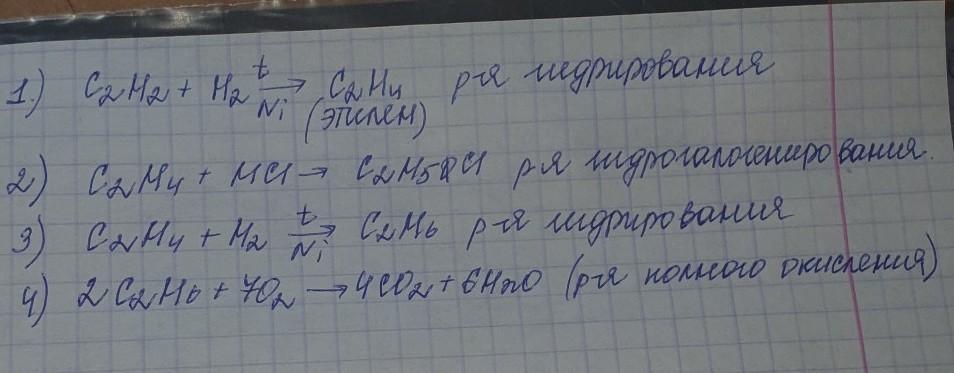 1.) C₂H₂ + H₂ →(t, Ni) C₂H₄ р-я гидрирования
(этилен)
2) C₂H₄ + HCl → C₂H₅Cl р-я гидрогалогенирования.
3) C₂H₄ + H₂ →(t, Ni) C₂H₆ р-я гидрирования
4) 2C₂H₆ + 7O₂ → 4CO₂ + 6H₂O (р-я полного окисления)